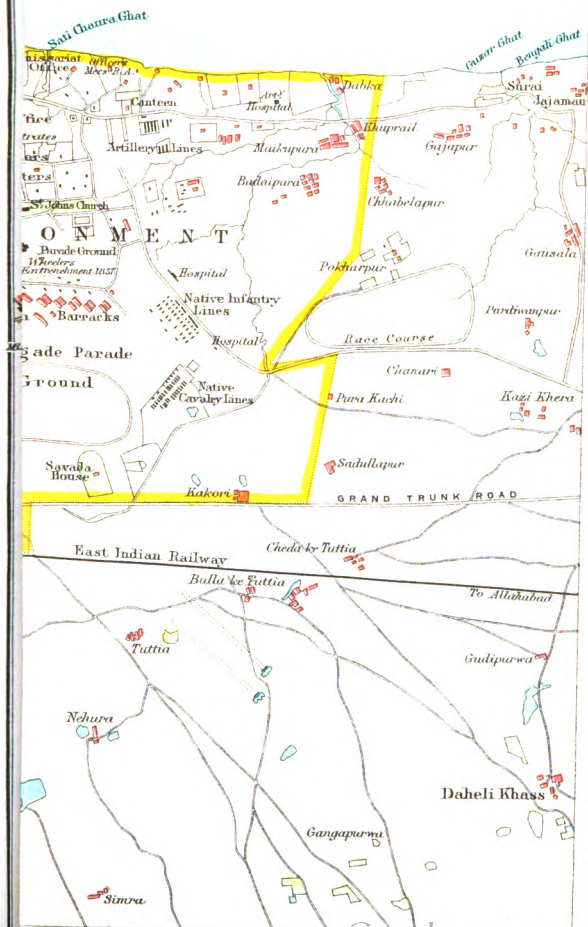 Sati Chaura Ghat
Guzar Ghat
Bengali Ghat
Office
Officers
Mess R.A.
Canteen
Arty
Hospital
Dabka
Surai
Jajamau
Artillery Lines
Maikupura
Khuprail
Gajapur
Badaipura
Chhabelapur
St. Johns Church
ONMENT
Parade Ground
Wheelers
Entrenchment 1857
Hospital
Pokharpur
Gausala
Native Infantry
Lines
Pardiwanpur
Barracks
Hospital
Race Course
gade Parade
Ground
Chanari
Native
Cavalry Lines
Pura Kachi
Kazi Khera
Savada
House
Sadullapur
Kakori
GRAND TRUNK ROAD
East Indian Railway
Cheda ke Tuttia
Bulla ke Tuttia
To Allahabad
Tuttia
Gudipurwa
Nehura
Daheli Khass
Gangapurwa
Simra